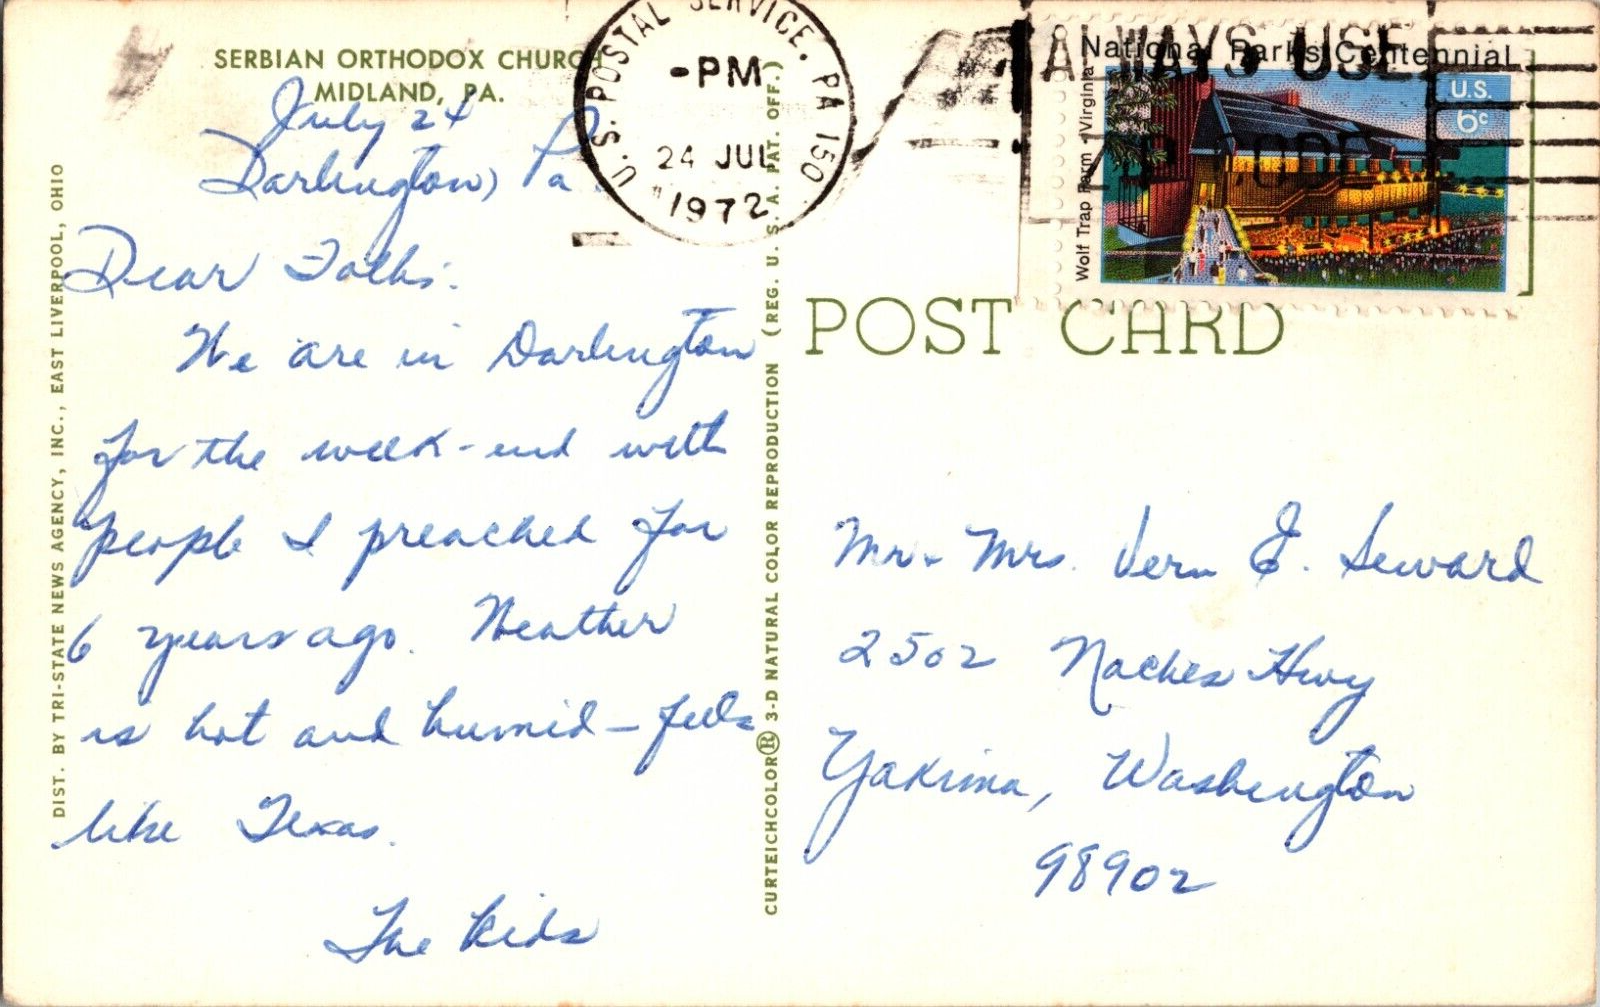 SERBIAN ORTHODOX CHURCH
MIDLAND, PA.
July 24
Darlington, Pa.
Dear Folks:
We are in Darlington
for the week-end with
people I preached for
6 years ago. Weather
is hot and humid – feels
like Texas.
The Kids
DIST. BY TRI-STATE NEWS AGENCY, INC., EAST LIVERPOOL, OHIO
CURTEICHCOLOR® 3-D NATURAL COLOR REPRODUCTION (REG. U. S. A. PAT. OFF.)
U.S. POSTAL SERVICE, PA 150
PM
24 JUL
1972
ALWAYS USE
ZIP CODE
National Parks Centennial
U.S.
6c
Wolf Trap Farm - Virginia
POST CARD
Mr & Mrs. Vern E. Seward
2502 Naches Hwy
Yakima, Washington
98902